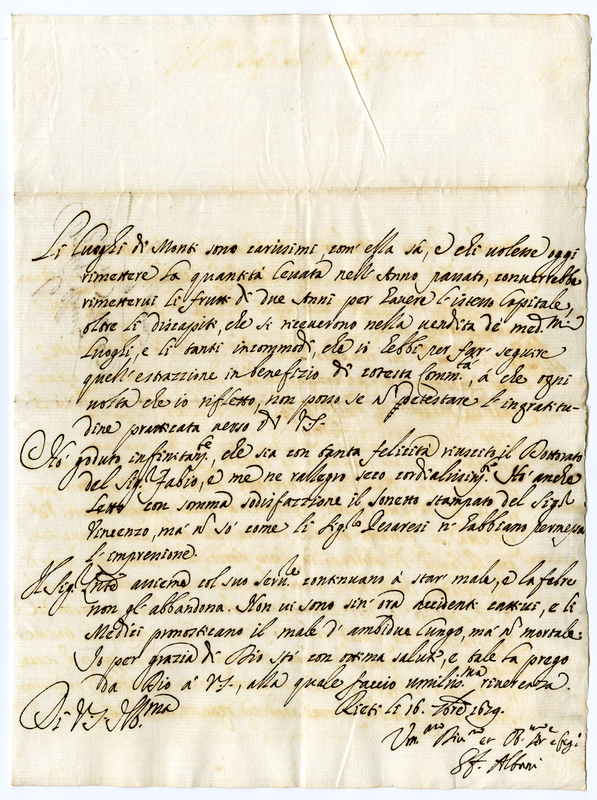 Li luoghi di Monti sono carissimi, com' ella sà, e chi volesse oggi
rimettere la quantità levata nell' Anno passato, converrebbe
rimettervi li frutti di due Anni per havere l' istesso Capitale,
oltre li discapiti, che si riceverono nella vendita de med.mi
Luoghi, e li tanti incommodi, che io hebbi per far seguire
quell' estrazzione in benefizio di cotesta Comm.tà, à che ogni
volta che io rifletto, non posso se ñ detestare l' ingratitu-
dine pratticata verso di VS.
Hò goduto infinitam.te, che sia con tanta felicità riuscito il Dottorato
del Sig.r Fabio, e me ne rallegro seco cordialissim.te. Hò anche
letto con somma sodisfazzione il sonetto stampato del Sig.r
Vincenzo, mà ñ sò come li Sig.ri Pesaresi n' habbiano permessa
l' impressione.
Il Sig.r assieme col suo serv.re continuano à star male, e la febre
non gl' abbandona. Non vi sono sin' ora accidenti cattivi, e li
Medici pronosticano il male d' ambidue lungo, mà ñ mortale.
Io per grazia di Dio stò con ottima salute, e tale la prego
da Dio à VS., alla quale faccio umiliss.ma riverenza.
Di VS. Ill.ma Rieti li 16. 1679.
Um.mo
Gf. Albani